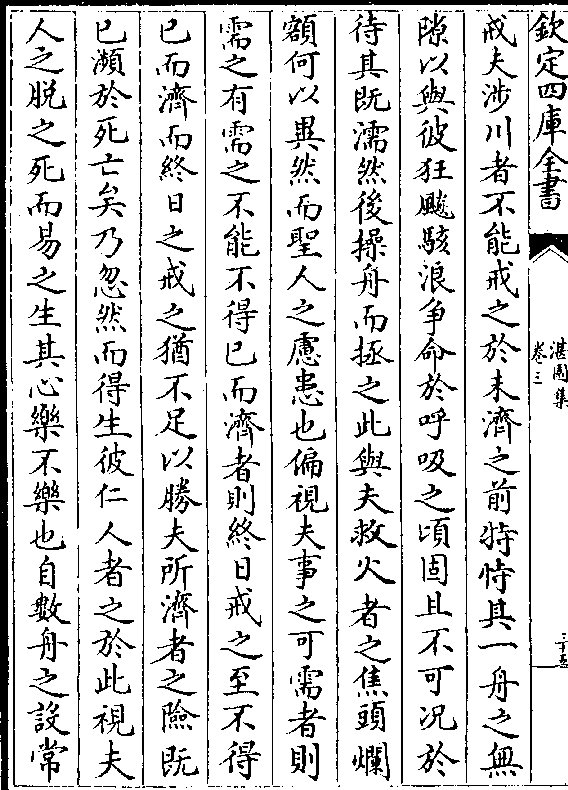 欽定四庫全書
湛園集
卷三
三十五
戒夫涉川者不能戒之於未濟之前特恃其一舟之無
隙以與彼狂飈駭浪争命於呼吸之頃固且不可況於
待其既濡然後操舟而拯之此與夫救火者之焦頭爛
額何以異然而聖人之慮患也偏視夫事之可需者則
需之有需之不能不得已而濟者則終日戒之至不得
已而濟而終日之戒之猶不足以勝夫所濟者之險既
已瀕於死亡矣乃忽然而得生彼仁人者之於此視夫
人之脱之死而易之生其心樂不樂也自數舟之設常